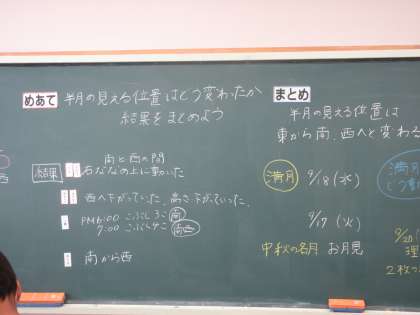 めあて 半月の見える位置はどう変わったか
結果をまとめよう
結果
南と西の間
右ななの上に動いた
西へ下がっていった。高さ下がっていった。
PM6:00 こぶし5こ 南
7:00 こぶし4こ 南西
南から西
まとめ
半月の見える位置は
東から南、西へと変わる
満月 9/18(水)
9/17(火)
中秋の名月 お月見
満月
9/20
理
2枚